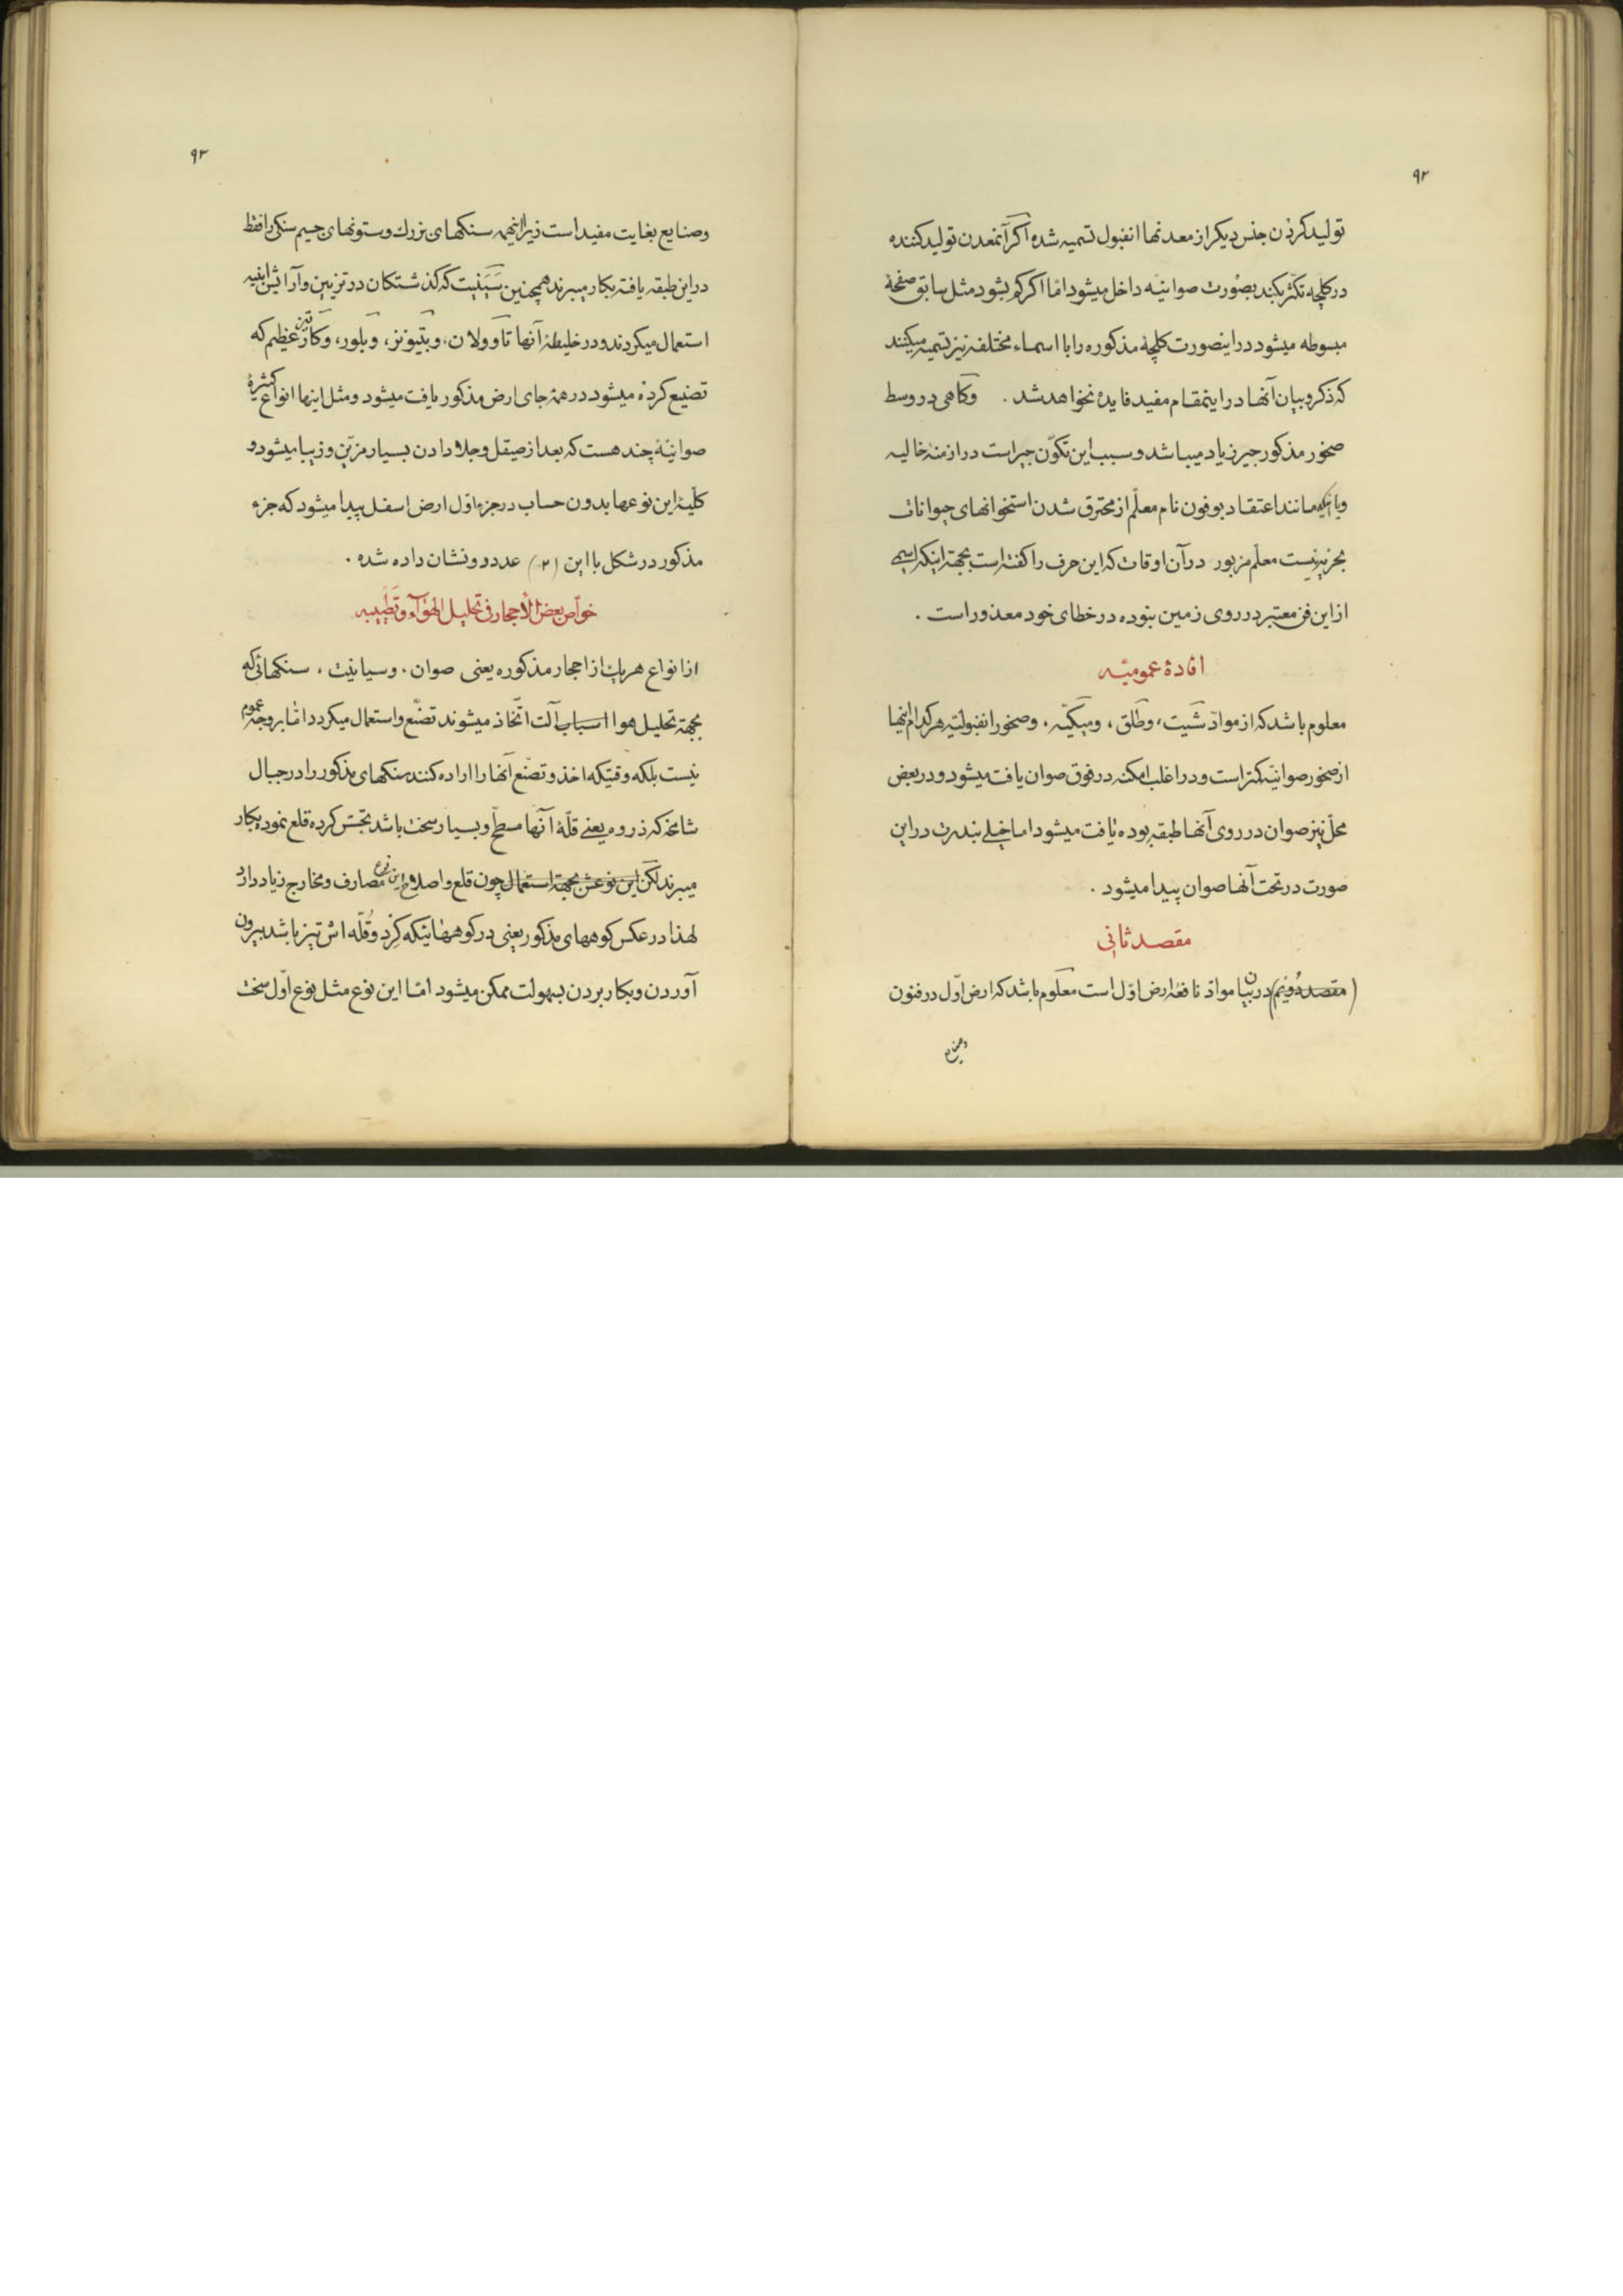 ٩٢
تولید کردن جنس دیکر از معدنها انفبول تسمیه شده اکر آنمعدن تولید کننده
در کلچه تکثر بکند بصورت صوانیه داخل میشود امّا اکر کم بشود مثل سابق صفحهٔ
مبسوطه میشود در اینصورت کلچهٔ مذکوره را با اسماء مختلفه نیز تسمیه میکنند
که ذکر و بیان آنها در اینمقام مفید فایدهٔ نخواهد شد . وکاهی در وسط
صخور مذکور جیر زیاد میباشد و سبب این تکوّن جیر است در ازمنهٔ خالیه
و یا اینکه مانند اعتقاد بوفون نام معلّم از محترق شدن استخوانهای حیوانات
بحریه نیست معلّم مزبور در آن اوقات که این حرف را کفته است بجهة اینکه اسمی
از این فن معتبر در روی زمین نبوده در خطای خود معذور است .
افادهٔ عمومیّه
معلوم باشد که از موادّ شیت، وطلق ، ومیکیّه ، وصخور انفبولیّه هر کدام اینها
از صخور صوانیّه کمتر است و در اغلب امکنه در فوق صوان یافت میشود و در بعض
محلّ نیز صوان در روی آنها طبقه بوده یافت میشود اما خیلی بندرت در این
صورت در تحت آنها صوان پیدا میشود .
مقصد ثانی
(مقصد دُویّم) در بیان موادّ نافعهٔ ارض اوّل است معلوم باشد که ارض اوّل در فنون
وصنایع
٩٣
وصنایع بغایت مفید است زیرا اینهمه سنکهای بزرك و ستونهای جسیم سنکی را فقط
در این طبقه یافته بکار میبرند همچنین سَیَنیت که کذشتکان در تزیین و آرایش ابنیه
استعمال میکردند و در خلیطهٔ آنها تاوولان، وبتیونز، وبلور، وکارتین عظیم که
تصنیع کرده میشود در همهٔ جای ارض مذکور یافت میشود و مثل اینها انواع کثیرهٔ
صوانیّهٔ چند هست که بعد از صیقل و جلا دادن بسیار مزیّن و زیبا میشود و
کلّیهٔ این نوعها بدون حساب در جزء اوّل ارض اسفل پیدا میشود که جزء
مذکور در شکل با این (٢) عدد دو نشان داده شده .
خواصّ بعض الأحجار فی تحلیل الهوآء وتطییبه
از انواع هر یك از احجار مذکوره یعنی صوان . وسیانیت ، سنکهائی که
بجهة تحلیل هوا اسباب آلت اتّخاذ میشوند تصنّع و استعمال میکردد امّا بر وجه عموم
نیست بلکه وقتیکه اخذ و تصنّع آنها را اراده کنند سنکهای مذکور را در جبال
شامخه که ذروه یعنی قلّهٔ آنها مسطّح و بسیار سخت باشد تجسّس کرده قلع نموده بکار
میبرند لکن این نوعش بجهة استعمال چون قلع و اصلاح این نوع مصارف و مخارج زیاد دارد
لهذا در عکس کوههای مذکور یعنی در کوههائیکه کِرد و قُلّه اش تیز باشد بیرون
آوردن و بکار بردن بسهولت ممکن میشود امّا این نوع مثل نوع اوّل سخت